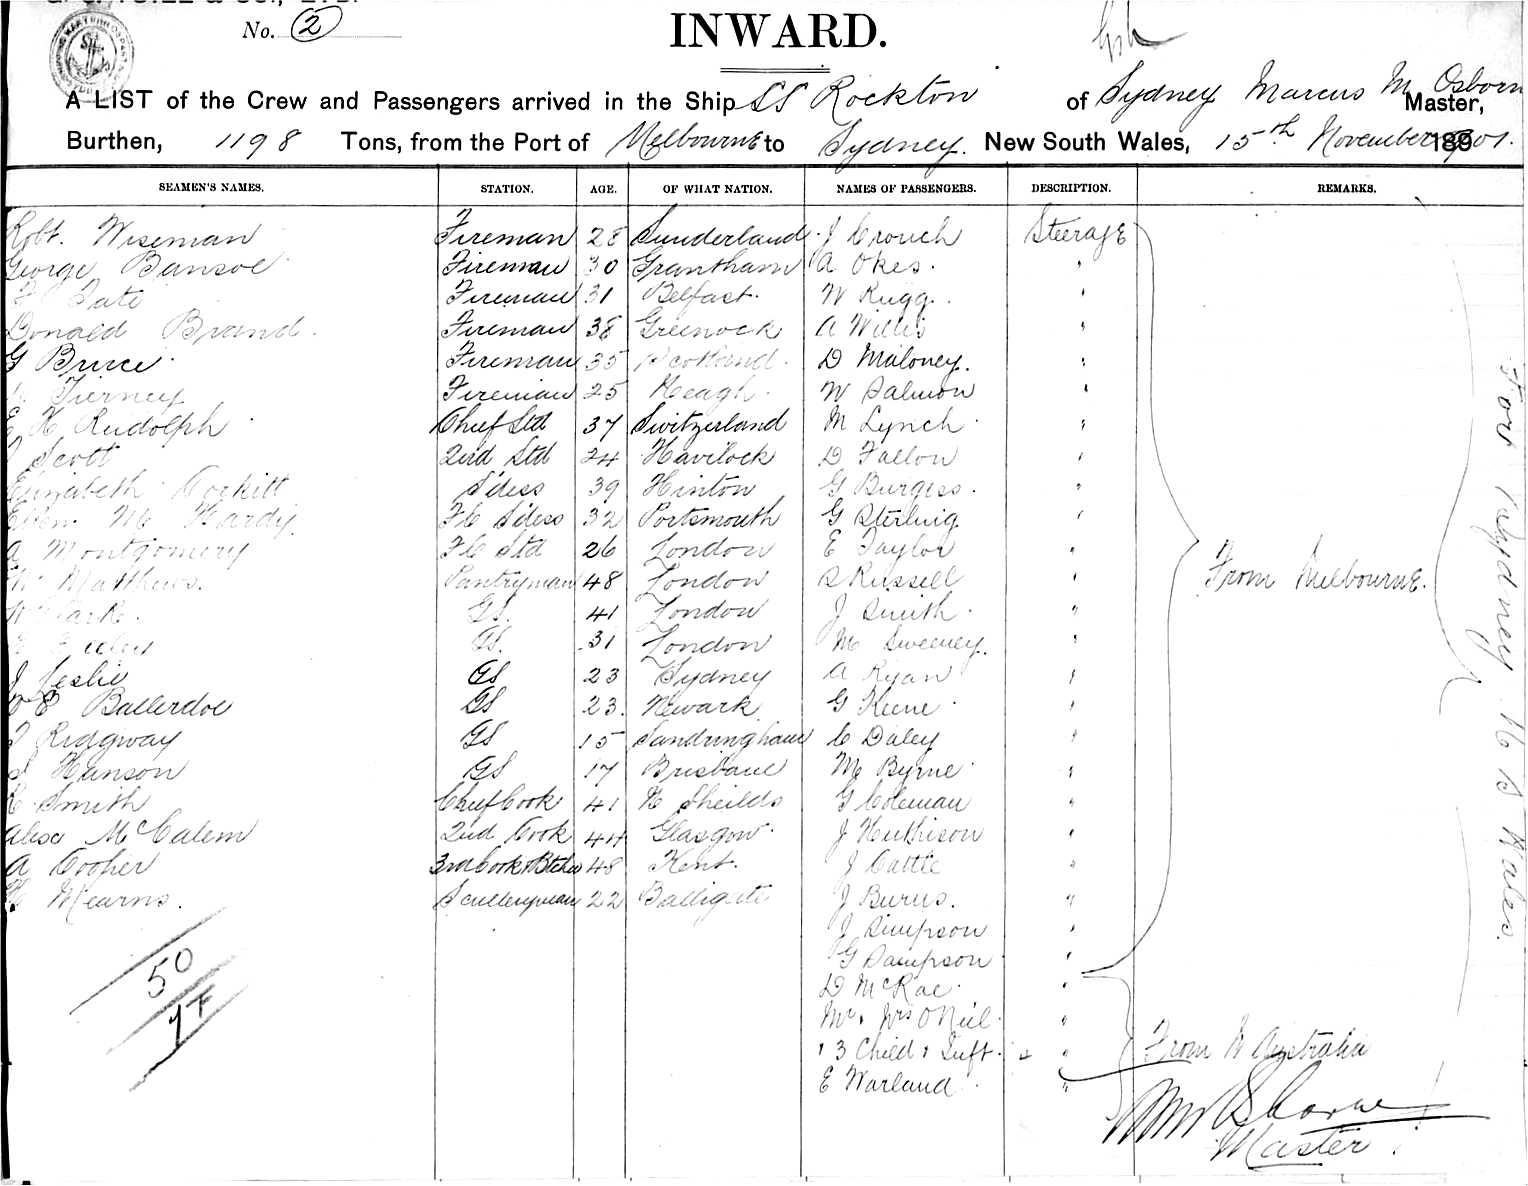 No. 2
INWARD.
A LIST of the Crew and Passengers arrived in the Ship SS Rockton of Sydney Marcus M Osborn Master,
Burthen, 1198 Tons, from the Port of Melbourne to Sydney. New South Wales, 15th November 1901.
SEAMEN'S NAMES. STATION. AGE. OF WHAT NATION. NAMES OF PASSENGERS. DESCRIPTION. REMARKS.
Robt. Wiseman Fireman 28 Sunderland J Crouch Steerage
George Bansoe Fireman 30 Grantham A Okes. "
Tate Fireman 31 Belfast. W Rugg. "
Donald Brand. Fireman 38 Greenock A Willis "
G Bruce Fireman 35 Scotland. D Maloney. "
Tierney Fireman 25 W Salmon "
E H Rudolph Chief Std 37 Switzerland M Lynch "
Scott 2nd Std 24 Havilock D Fallon "
Elizabeth Corkitt S'dess 39 Hinton G Burgess. "
Ellen M Hardy F C S'dess 32 Portsmouth G Sterling "
A Montgomery F C Std 26 London E Taylor "
W Matthews. Pantryman 48 London S Russell "
GS. 41 London J Smith "
GS. 31 London M Sweeney. "
J Leslie GS 23 Sydney A Ryan "
E Ballerdoe GS 23. Newark G Keene "
T Ridgway GS 15 Sandringham C Daley "
S Hanson GS 17 Brisbane M Byrne "
Smith Chief Cook 41 N Sheilds G Coleman "
Alex McCalem 2nd Cook 44 Glasgow J Huthison "
A Cooper 3rd Cook & Btcher 48 Kent. J Cattle "
Mearns. Sculleryman 22 Balligate J Burns. "
J Simpson "
G Sampson "
D McRae "
Mr & Mrs O Neil "
" 3 Child & Inft. "
E Warland "
From Melbourne.
From W Australia
For Sydney N S Wales.
50
17
Master